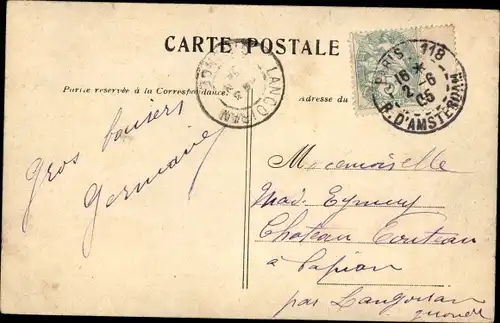 CARTE POSTALE
Partie réservée à la Correspondance.
Adresse du
LANGOIRAN
PARIS 118
16 *
2 - 6
05
R. D'AMSTERDAM
Gros baisers
Germaine
Mademoiselle
Mad. Eymery
Château
à
par Langoiran
Gironde